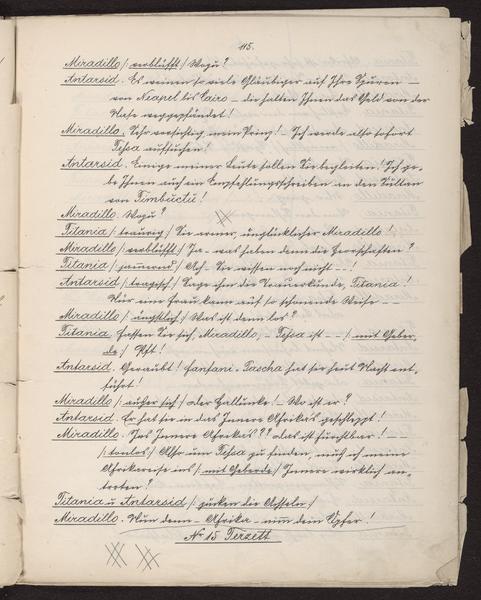 115.
Miradillo /: verblüfft :/ Wozu?
Antarsid. Es weinen so viele Gläubiger auf Ihre Spuren —
von Neapel bis Cairo — die hatten Ihnen das Geld von der
Nase weggepfändet!
Miradillo. Sehr vorsichtig, mein Prinz! Ich werde also sofort
Tessa aufsuchen!
Antarsid. Einige meiner Leute sollen Sie begleiten! Ich ge-
be Ihnen auch ein Empfehlungsschreiben an den Sultan
von Timbuctu!
Miradillo. Wozu?
Titania /: traurig :/ Sie armer, unglücklicher Miradillo!
Miradillo /: verblüfft :/ Ja — was haben denn die Herrschaften?
Titania /: jammernd :/ Ach — Sie wissen noch nicht — — !
Antarsid /: tragisch :/ Sage ihm die Trauerkunde, Titania!
Nur eine Frau kann auf so schonende Weise — —
Miradillo /: ängstlich :/ Was ist denn los?
Titania. Fassen Sie sich, Miradillo, — Tessa ist — — /: mit Geber-
de :/ Pfft!
Antarsid. Geraubt! Fanfani-Pascha hat sie heut Nacht ent-
führt!
Miradillo /: außer sich :/ oder Hallunke! — Wo ist er?
Antarsid. Er hat sie in das Innere Afrika's geschleppt!
Miradillo. Ins Innere Afrika's?? das ist furchtbar! — —
/: tonlos :/ Also um Tessa zu finden, muß ich meine
Afrikareise ins /: mit Geberde :/ Innere wirklich an-
treten?
Titania u Antarsid /: zucken die Achseln :/
Miradillo. Nun denn — Afrika — nimm dein Opfer!
Nr 15 Terzett